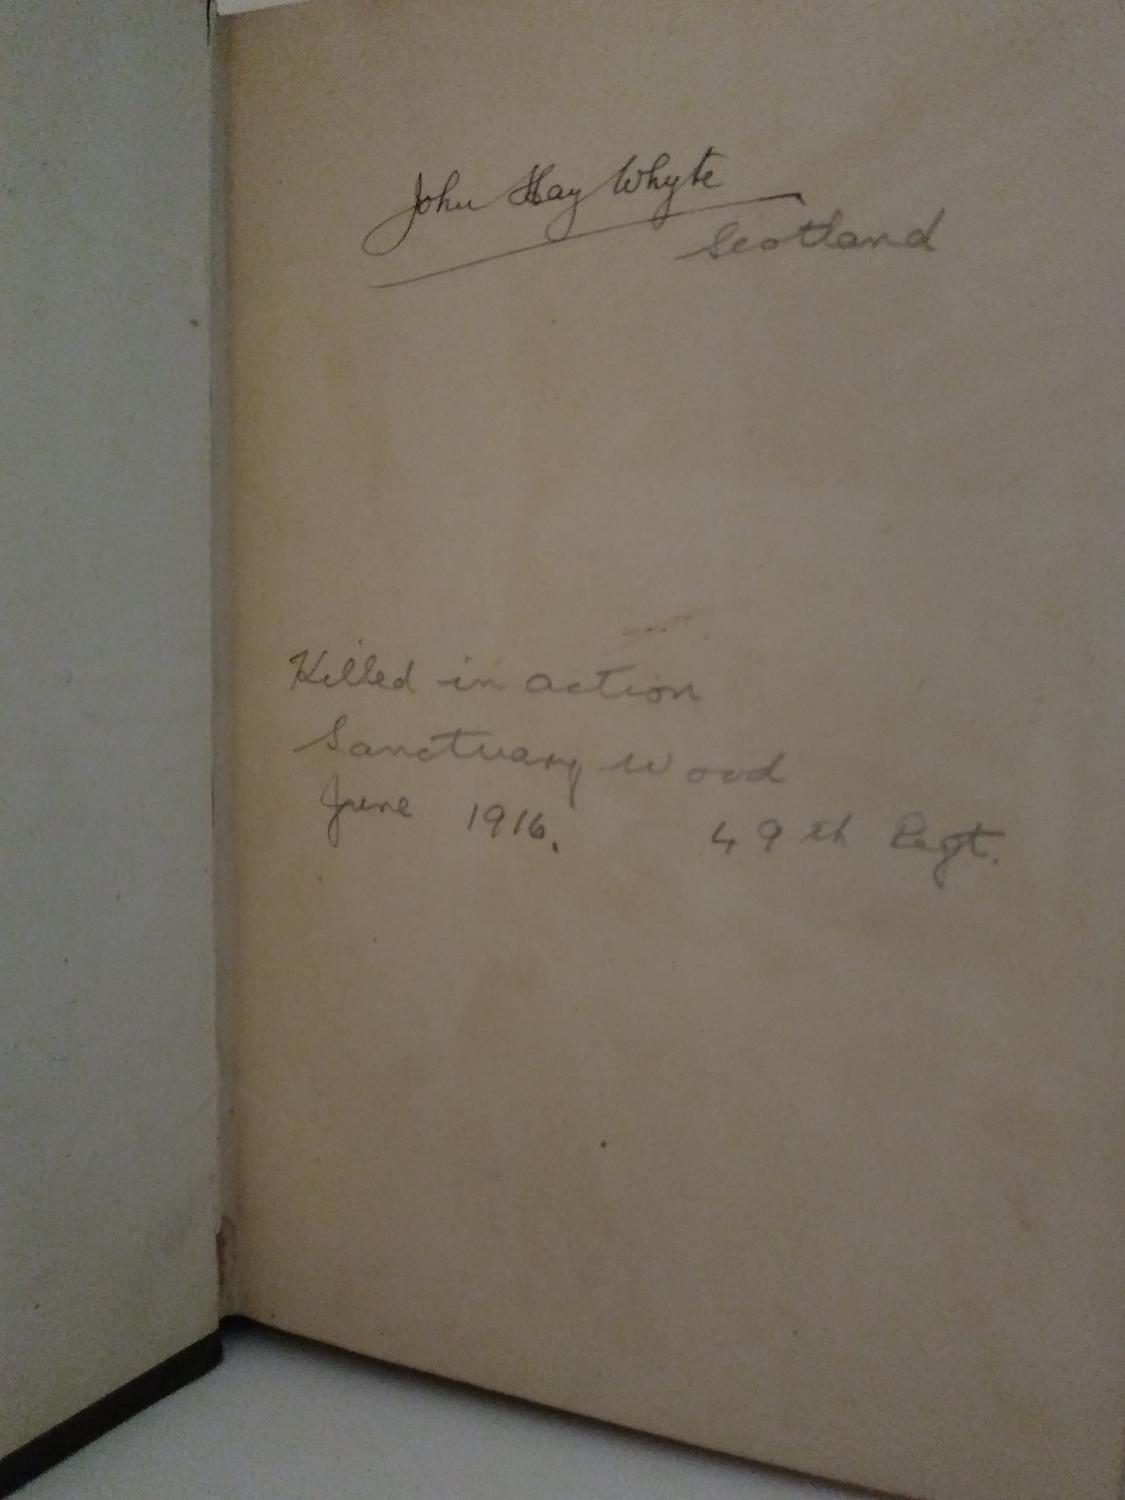 John Hay Whyte
Scotland
Killed in action
Sanctuary Wood
June 1916. 49th Regt.